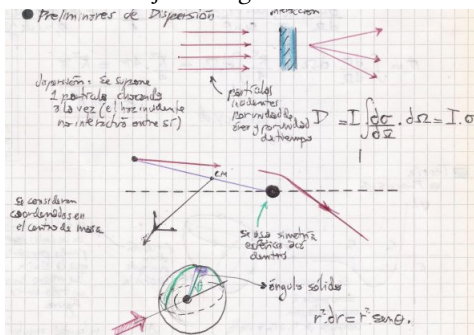 Preliminares de Dispersión
interacción
dispersión: Se supone
1 partícula chocando
a la vez (el haz incidente
no interactúa entre sí)
partículas
incidentes
por unidad de
área y por unidad
de tiempo
D = I ∫ dσ/dΩ · dΩ = I · σ
C.M
Se consideran
coordenadas en
el centro de masa
Se usa simetría
esférica acá
dentro
θ
ángulo sólido
r² dr = r² senθ.